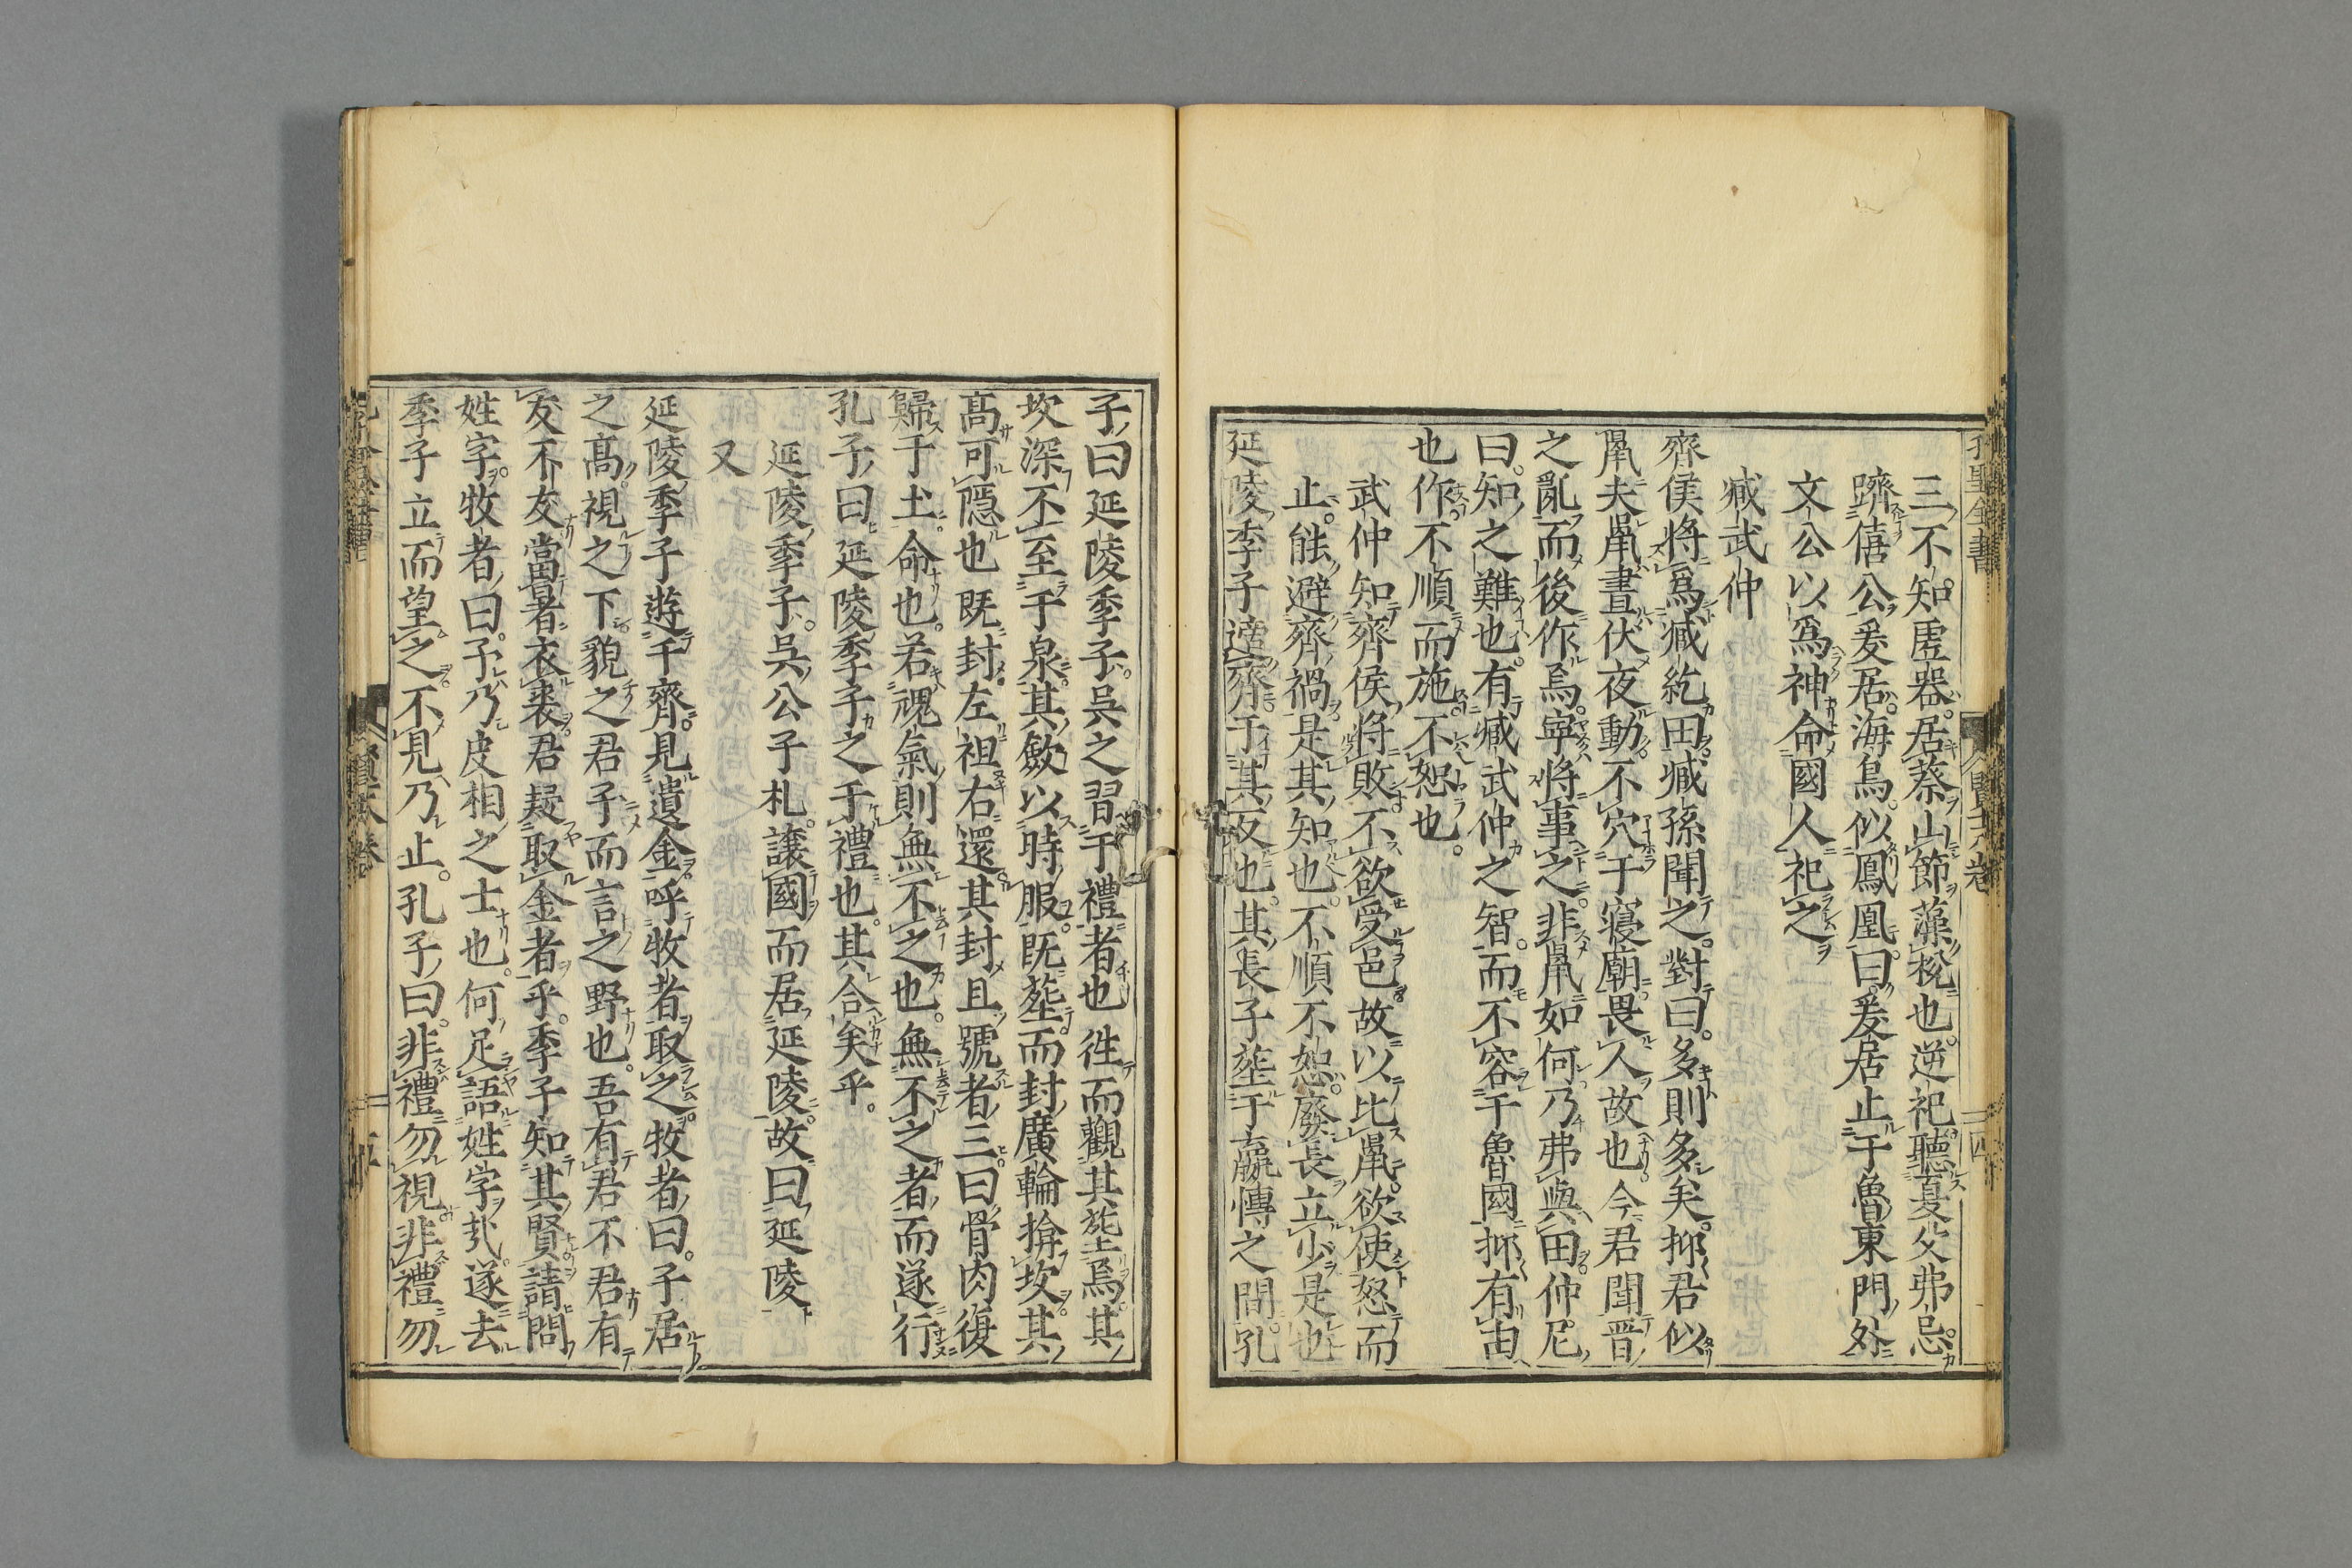 三不知虚器居蔡山節藻梲也逆祀聽夏父弗忌
躋僖公爰居海鳥似鳳凰曰爰居止于魯東門外
文公以爲神命國人祀之
臧武仲
齊侯將爲臧紇田臧孫聞之對曰多則多矣抑君似
鼠夫鼠晝伏夜動不穴于寢廟畏人故也今君聞晋
之亂而後作焉寧將事之非鼠如何乃弗與田仲尼
曰知之難也有臧武仲之智而不容于魯國抑有由
也作不順而施不恕也
武仲知齊侯將敗不欲受邑故以比鼠欲使怒而
止能避齊禍是其知也不順不恕廢長立少是也
延陵季子適齊于其反也其長子塟于嬴博之間孔
子曰延陵季子吳之習于禮者也徃而觀其塟焉其
坎深不至于泉其斂以時服既塟而封廣輪揜坎其
髙可隱也既封左袒右還其封且號者三曰骨肉復
歸于土命也若魂氣則無不之也無不之者而遂行
孔子曰延陵季子之于禮也其合矣乎
延陵季子吳公子札讓國而居延陵故曰延陵
又
延陵季子遊于齊見遺金呼牧者取之牧者曰子居
之髙視之下貌之君子而言之野也吾有君不君有
友不友當暑者衣裘君疑取金者乎季子知其賢請問
姓字牧者曰子乃皮相之士也何足語姓字㢤遂去
季子立而望之不見乃止孔子曰非禮勿視非禮勿